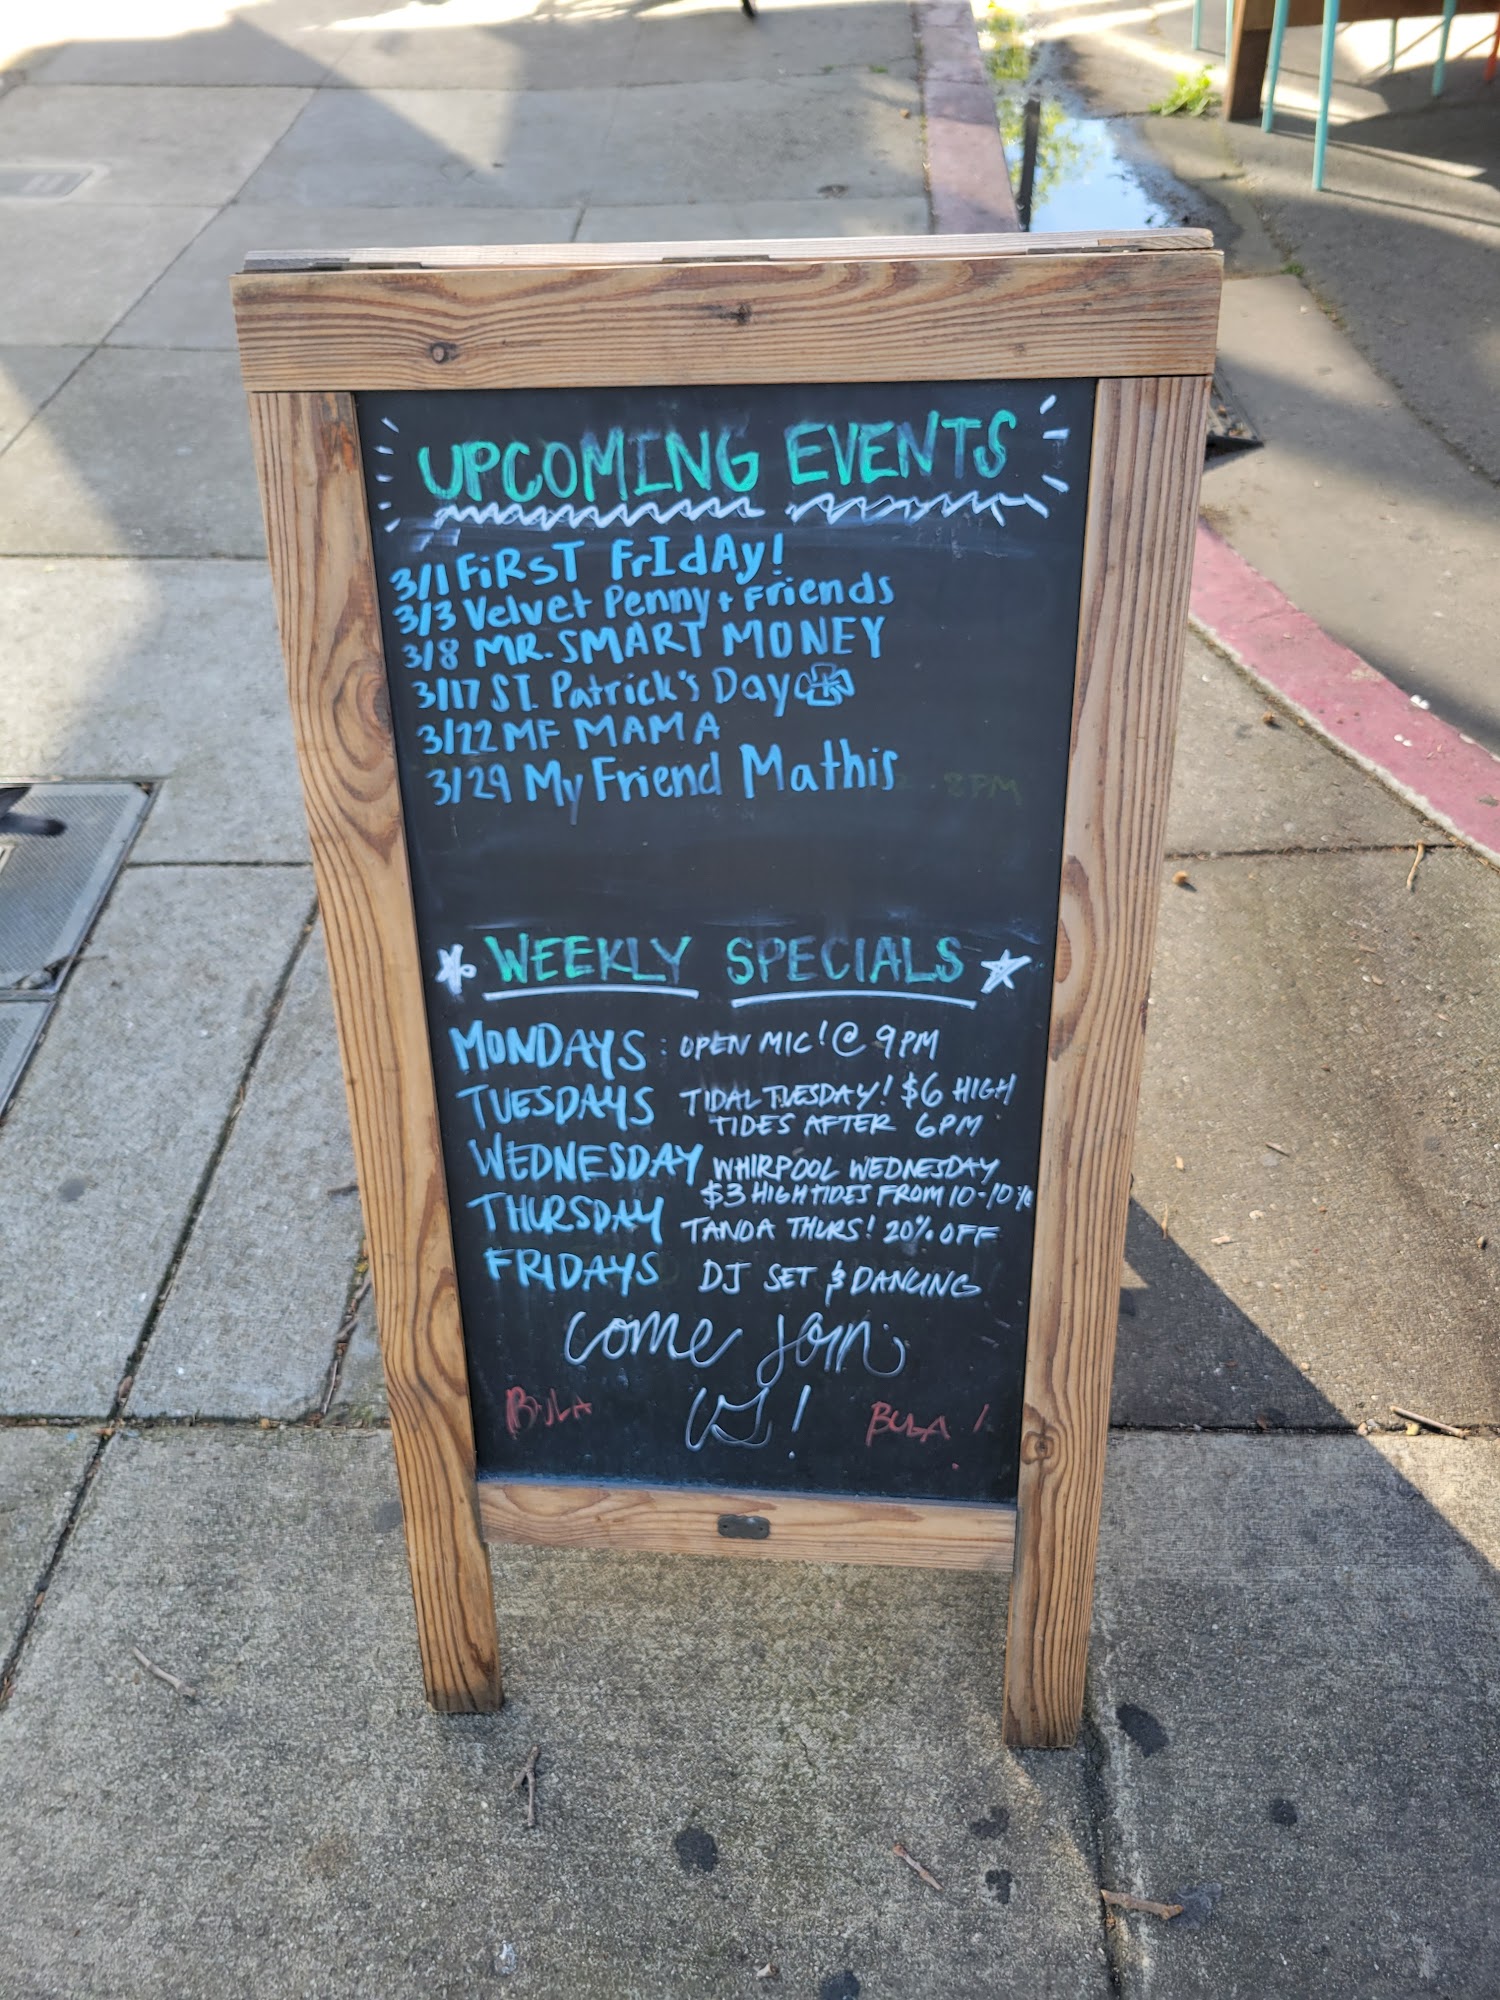 UPCOMING EVENTS
3/1 FiRST FrIdAy!
3/3 Velvet Penny + Friends
3/8 MR. SMART MONEY
3/17 ST. Patrick's Day
3/22 MF MAMA
3/29 My Friend Mathis
8PM
WEEKLY SPECIALS
MONDAYS: OPEN MIC! @ 9PM
TUESDAYS TIDAL TUESDAY! $6 HIGH
TIDES AFTER 6PM
WEDNESDAY WHIRPOOL WEDNESDAY
$3 HIGH TIDES FROM 10-10
THURSDAY TANOA THURS! 20% OFF
FRIDAYS DJ SET & DANCING
come join
us!
BULA BULA!